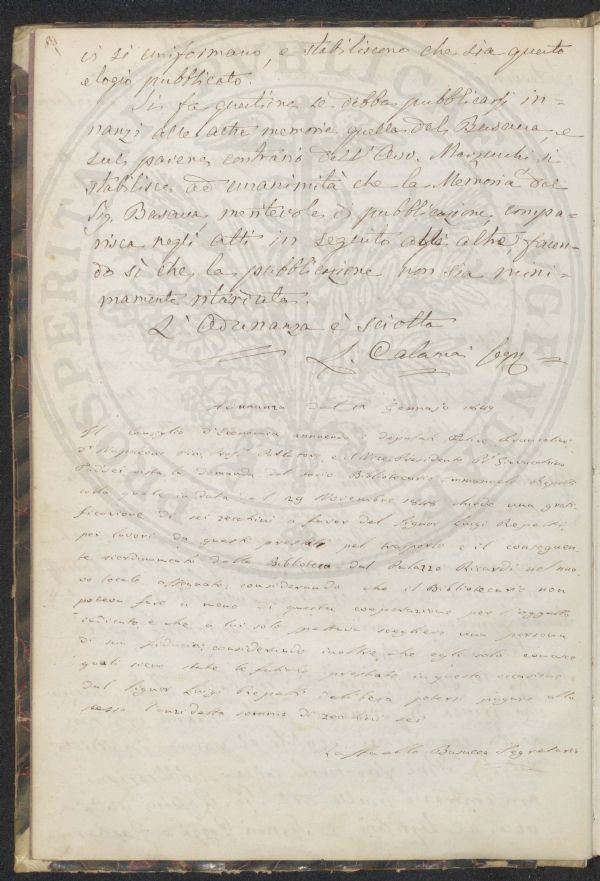 ci si uniformano, e stabiliscono che sia questo
elogio pubblicato.
Si fa questione se debba pubblicarsi in=
nanzi alle altre memorie quella del Busacca, e
sul parere contrario dell'Avv. Marzucchi si
stabilisce ad unanimità che la Memoria del
Sig. Busacca meritevole di pubblicazione compa=
risca negli atti in seguito alle altre, facen=
do sì che la pubblicazione non sia mini=
mamente ritardata.
L'Adunanza è sciolta
L. Calamai Segr.
Adunanza del Gennaio 1849
Il Consiglio d'Economia annuendo i deputati
e il Vice Presidente
vista la domanda del socio Bibliotecario Emmanuele Repetti
colla quale in data del 29 Novembre 1848 chiede una grati=
ficazione di sei zecchini a favor del Signor Luigi Repetti
pei favori da questi prestati pel trasporto e il conseguen=
te riordinamento della Biblioteca dal Palazzo Riccardi nel nuo=
vo locale assegnato; considerando che il Bibliotecario non
poteva fare a meno di questa cooperazione per l'oggetto
indicato e che a lui solo spettava scegliere una persona
di sua fiducia; considerando inoltre che egli solo conosce
quali sieno state le fatiche prestate in questa occasione
dal Signor Luigi Repetti delibera potersi pagare allo
stesso l'anzidetta somma di zecchini sei
Raffaello Busacca Segretario